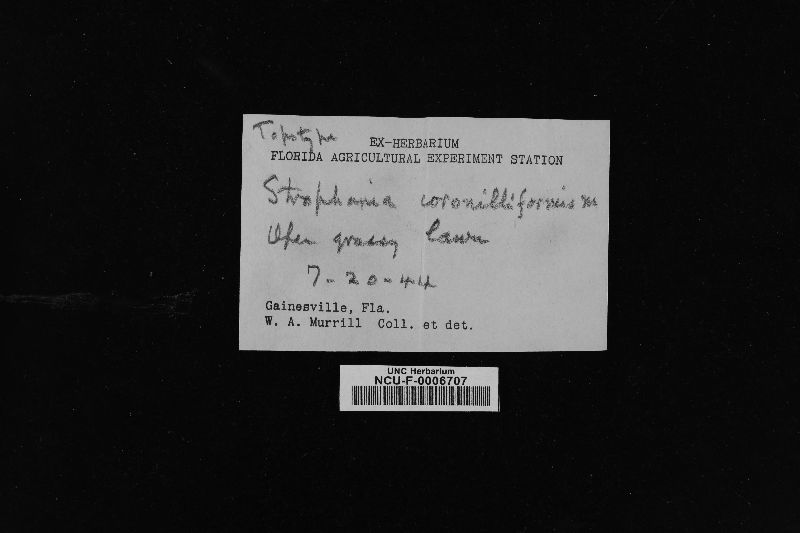 Topotype
EX-HERBARIUM
FLORIDA AGRICULTURAL EXPERIMENT STATION
Stropharia coronilliformis M
Open grassy lawn
7-20-44
Gainesville, Fla.
W. A. Murrill Coll. et det.
UNC Herbarium
NCU-F-0006707